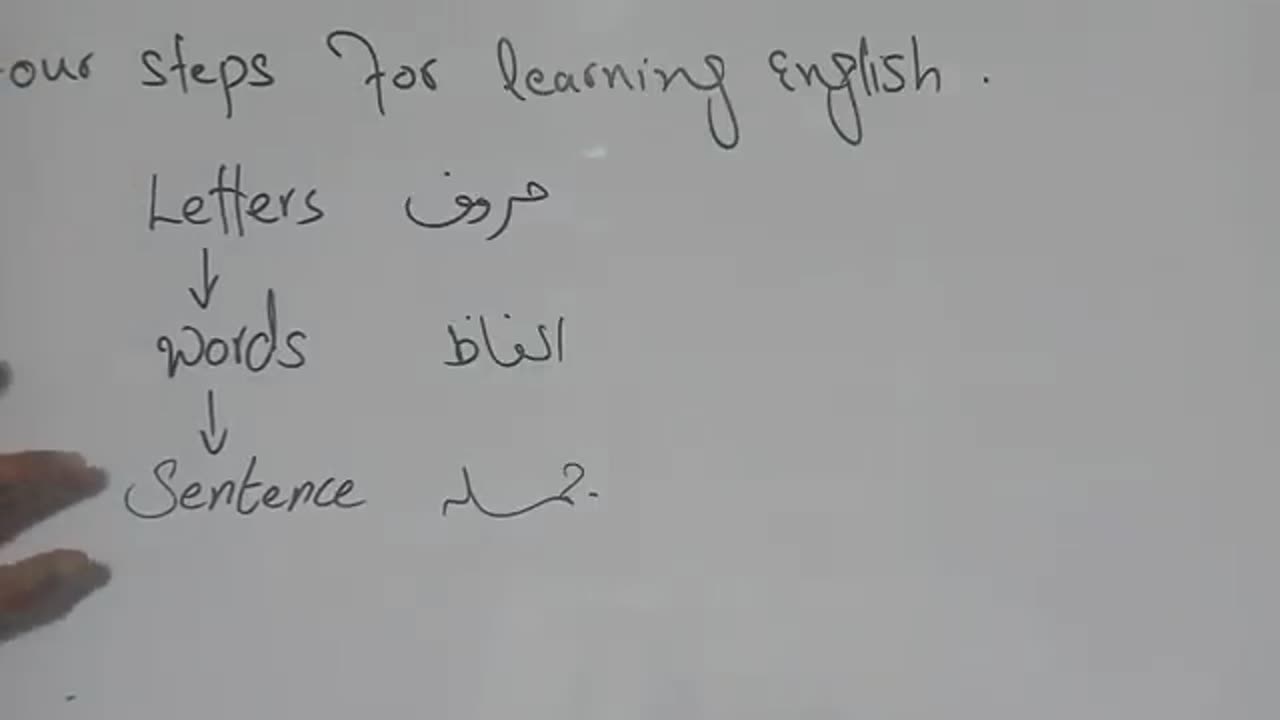 our steps for learning English .
Letters حروف
↓
words الفاظ
↓
Sentence جملہ